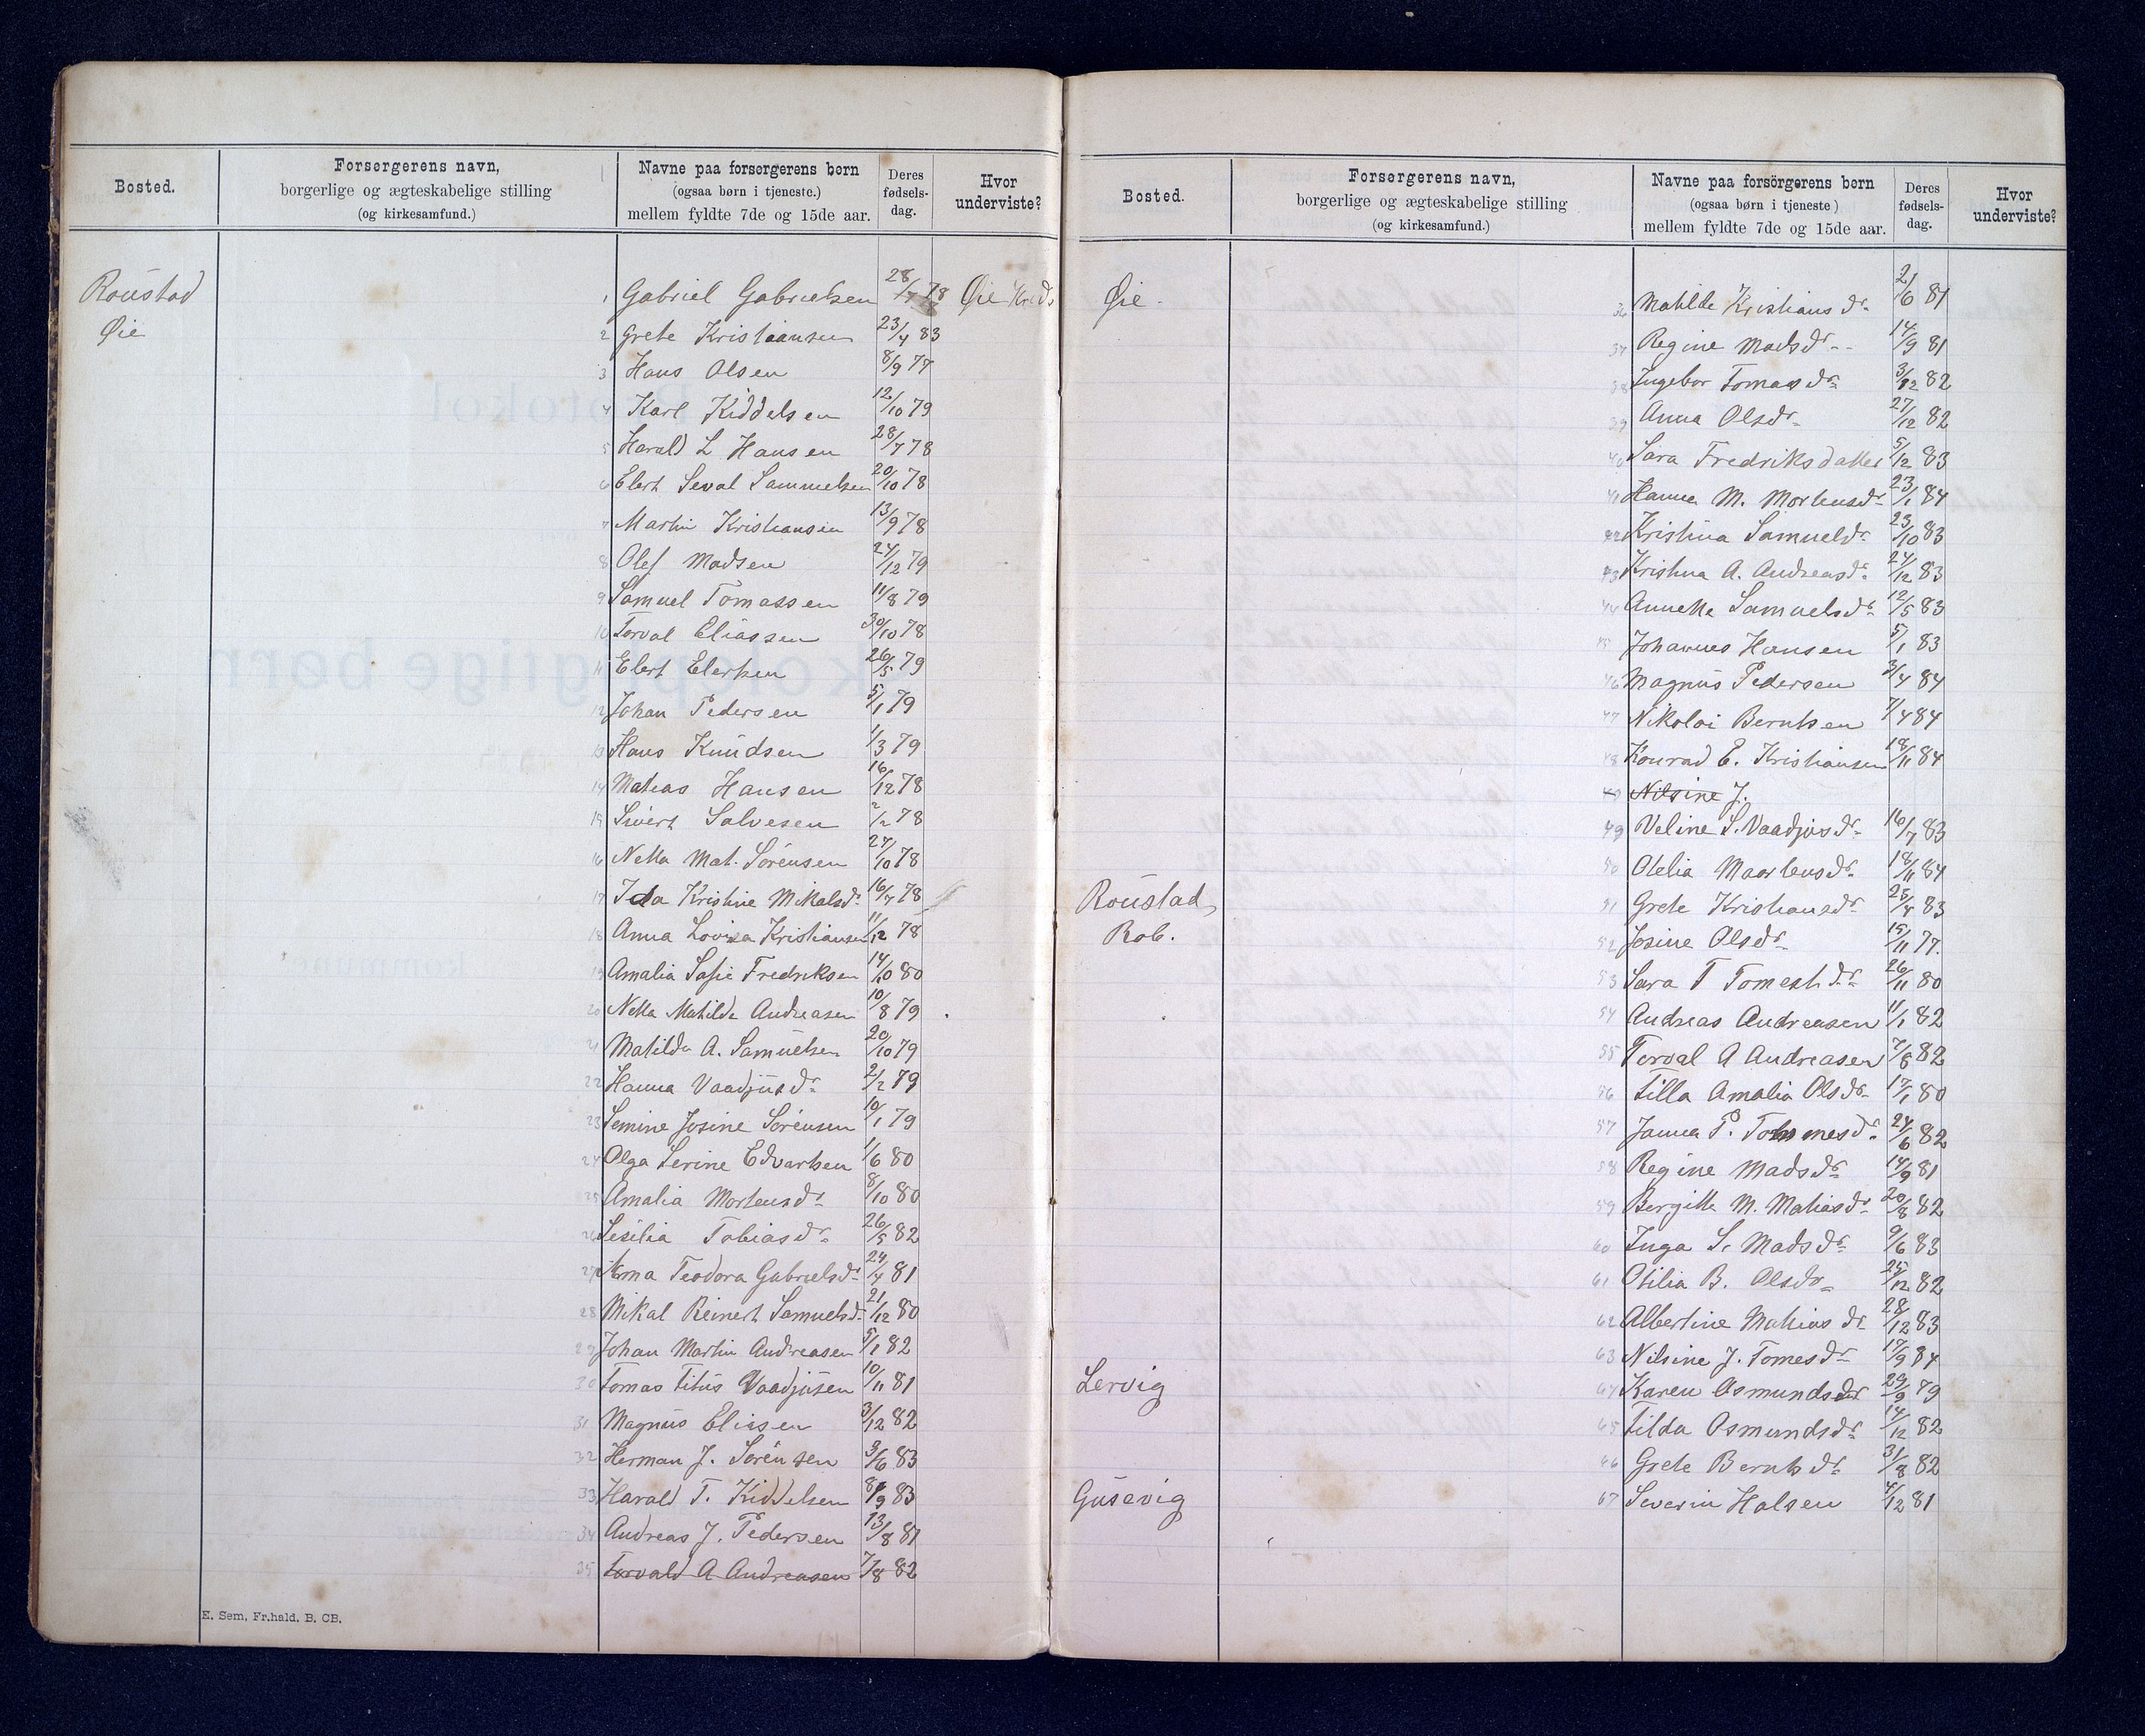 Bosted.
Forsørgerens navn,
borgerlige og ægteskabelige stilling
(og kirkesamfund.)
Navne paa forsørgerens børn
(ogsaa børn i tjeneste.)
mellem fyldte 7de og 15de aar.
Deres
fødsels-
dag.
Hvor
underviste?
Roustad 1 Gabriel Gabrielsen 28/7 78 Øie Kreds
Øie 2 Grete Kristiansen 23/4 83
3 Hans Olsen 8/9 77
4 Karl Kiddelsen 12/10 79
5 Harald L Hansen 28/7 78
6 Elert Seval Sammelsen 20/10 78
7 Martin Kristiansen 13/9 78
8 Olef Madsen 24/12 79
9 Samuel Tomassen 11/8 79
10 Torval Eliassen 30/10 78
11 Elert Elertsen 26/5 79
12 Johan Pedersen 5/1 79
13 Hans Knudsen 1/3 79
14 Matias Hansen 16/12 78
15 Sivert Salvesen 2/2 78
16 Netta Mat. Sörensen 27/10 78
17 Ida Kristine Mikalsdr 16/7 78
18 Anna Lovisa Kristiansen 11/12 78
19 Amalia Sofie Fredriksen 14/10 80
20 Netta Matilda Andreasen 10/8 79
21 Matilda A. Samuelsen 20/10 79
22 Hanna Vaadjusdr 2/2 79
23 Semine Josine Sörensen 10/1 79
24 Olga Serine Edvartsen 1/6 80
25 Amalia Mortensdr 8/10 80
26 Sesilia Tobiasdr 26/5 82
27 Anna Teodora Gabrielsdr 24/4 81
28 Mikal Reinert Samuelsdr 21/12 80
29 Johan Martin Andreasen 5/1 82
30 Tomas Titus Vaadjusen 10/11 81
31 Magnus Eliasen 3/12 82
32 Herman J. Sörensen 3/6 83
33 Harald T. Kiddelsen 8/9 83
34 Andreas J. Pedersen 13/8 81
35 Torvald A Andreasen 7/8 82
E. Sem, Fr.hald, B. CB.
Bosted.
Forsørgerens navn,
borgerlige og ægteskabelige stilling
(og kirkesamfund.)
Navne paa forsörgerens børn
(ogsaa børn i tjeneste)
mellem fyldte 7de og 15de aar.
Deres
fødsels-
dag.
Hvor
underviste?
Øie. 36 Matilde Kristiansdr 2/6 81
37 Regine Madsdr 14/9 81
38 Ingebor Tomasdr 3/12 82
39 Anna Olsdr 27/12 82
40 Sara Fredriksdatter 5/12 83
41 Hanna M. Mortensdr 23/1 84
42 Kristina Samueldr 23/10 83
43 Kristina A. Andreasdr 24/12 83
44 Annette Samuelsdr 12/5 83
45 Johannes Hansen 5/1 83
46 Magnus Pedersen 3/4 84
47 Nikolai Berntsen 7/4 84
48 Konrad E. Kristiansen 18/11 84
Nilsine J.
49 Veline S. Vaadjusdr 16/7 83
50 Otelia Maartensdr 18/11 84
Roustad, 51 Grete Kristiansdr 23/4 83
Rob. 52 Josine Olsdr 15/11 77.
53 Sara T Tomesdr 26/11 80
54 Andreas Andreasen 11/1 82
55 Torval A Andreasen 7/8 82
56 Tilla Amalia Olsdr 17/1 80
57 Janna P. Tommesdr 24/6 82
58 Regine Madsdr 14/9 81
59 Bergitte M. Matiasdr 20/8 82
60 Inga S. Madsdr 9/6 83
61 Otilia B. Olsdr 25/12 82
62 Albertine Mathias dr 28/12 83
63 Nilsine J. Tomesdr 17/9 84
Lervig 64 Karen Osmundsdr 29/9 79
65 Tilda Osmundsdr 14/12 82
66 Grete Berntsdr 31/8 82
Gusevig 67 Severin Halsen 4/12 81